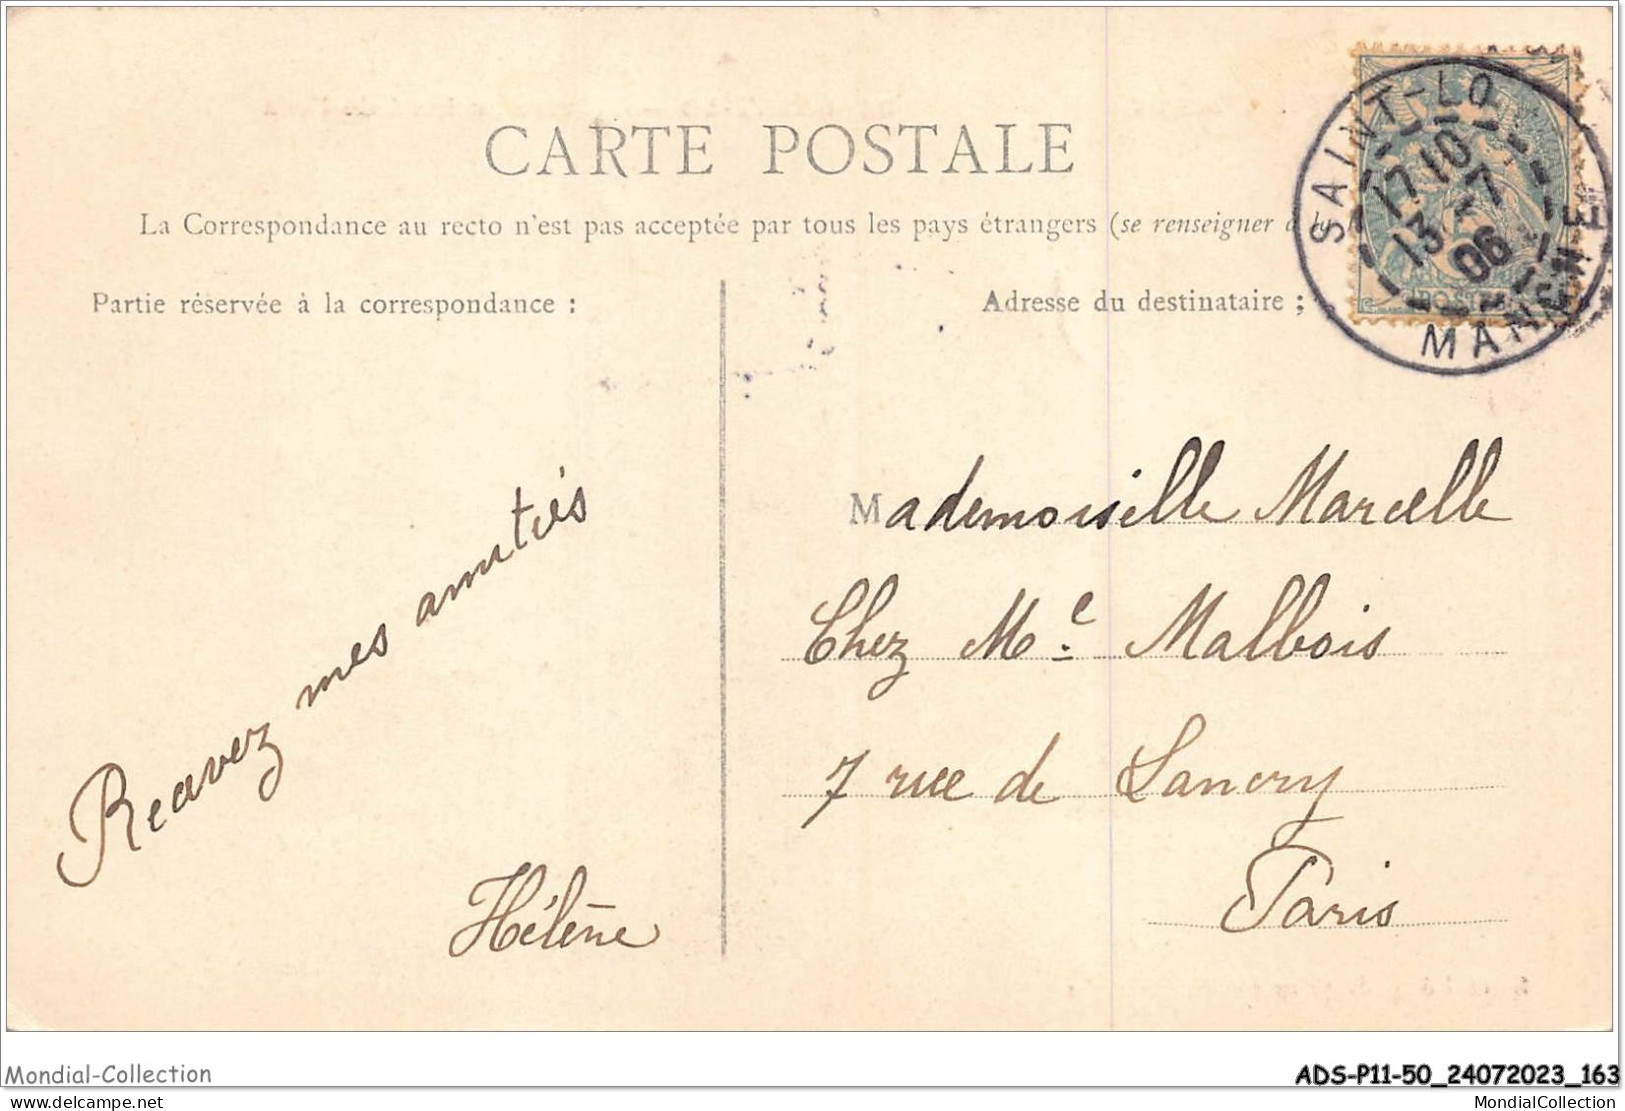 CARTE POSTALE
La Correspondance au recto n'est pas acceptée par tous les pays étrangers (se renseigner à la
SAINT-LO
17 10
13 - 7
06
MANCHE
POSTES
Partie réservée à la correspondance :
Adresse du destinataire ;
Recevez mes amitiés
Hélène
Mademoiselle Marcelle
Chez Me Malbois
7 rue de Lancry
Paris
Mondial-Collection
ADS-P11-50_24072023_163
www.delcampe.net
MondialCollection